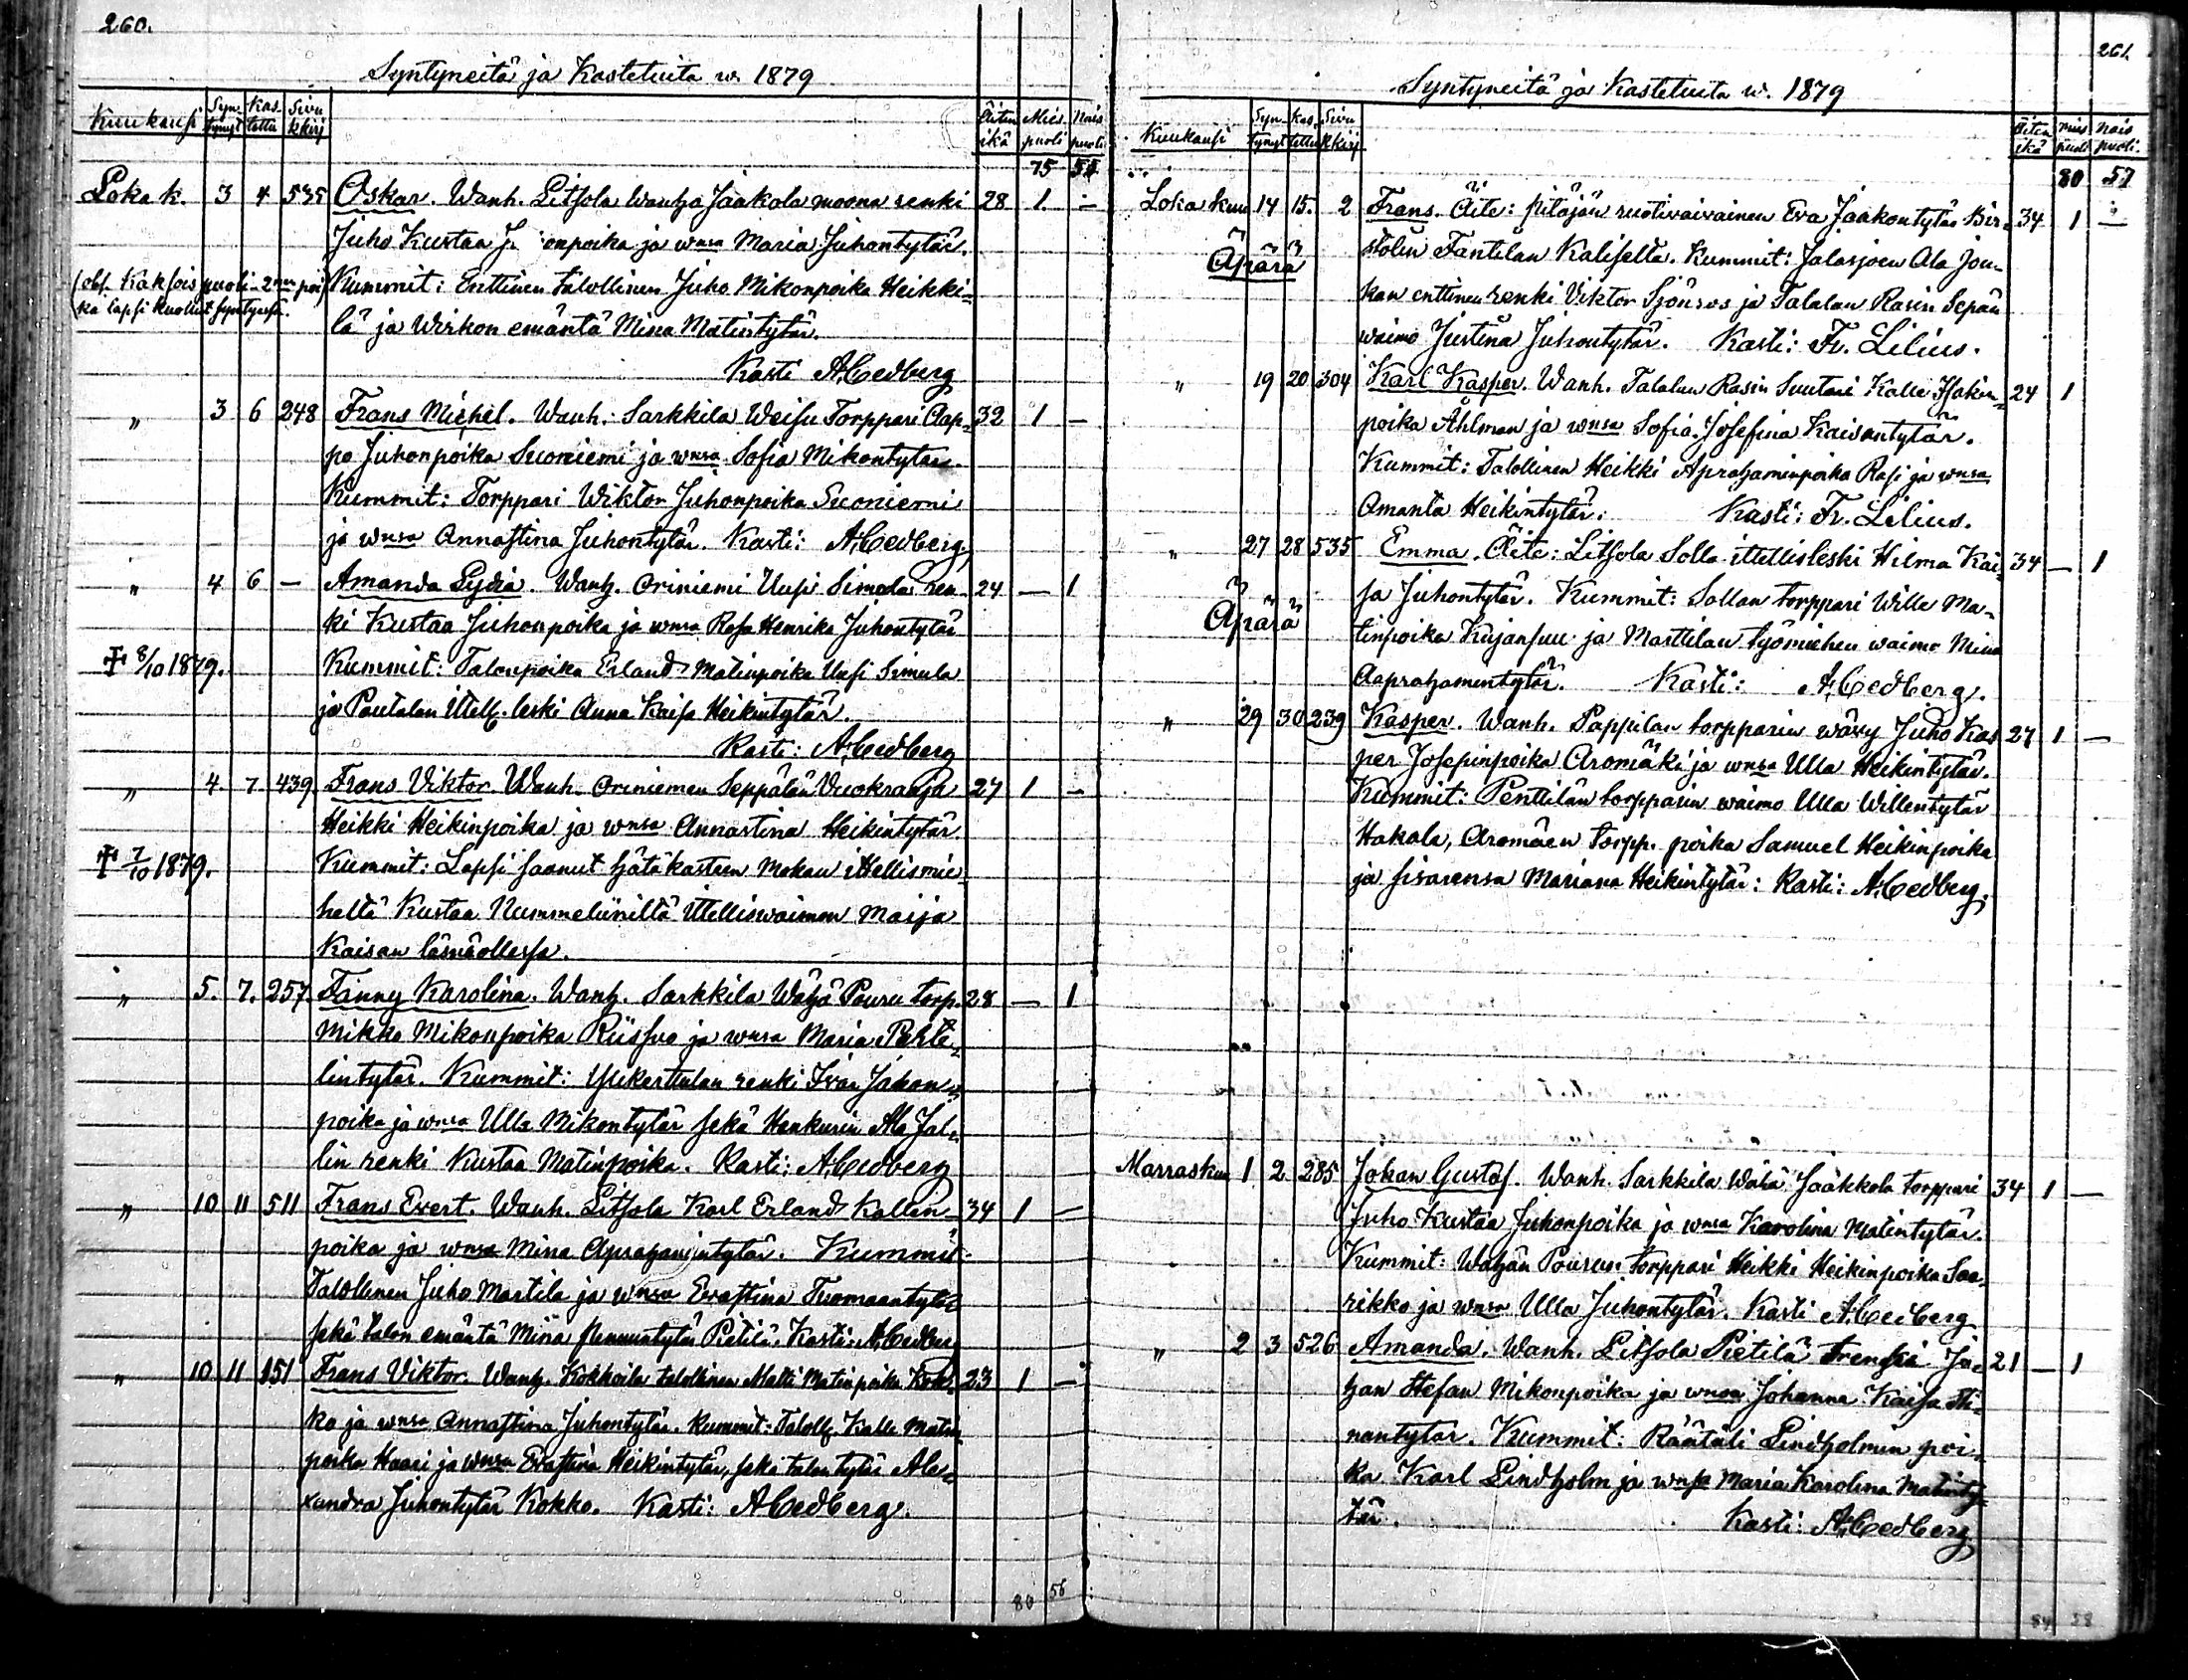 260.
Syntyneitä ja Kastetuita w. 1879
Kuukausi Syn- tynyt Kas- tettu Sivu kkirj Äiten ikä Mies puoli Nais puoli
75 54
Loka k. 3 4 535 Oskar. Wanh. Litsola Wanha Jaakola muona renki 28 1 —
Juho Kustaa onpoika ja wnsa Maria Juhontytär.
(obs. Kaksois puoli-2nen poi Kummit: Enttinen talollinen Juho Mikonpoika Heikki-
ka lapsi kuollut syntyessä. lä ja Wirkon emäntä Miina Matintytär.
Kasti A. Cedberg
" 3 6 248 Frans Michel. Wanh: Sarkkila Weisu Torppari Aap- 32 1 —
po Juhonpoika Suoniemi ja wnsa Sofia Mikontytär.
Kummit: Torppari Wiktor Juhonpoika Suoniemi
ja wnsa Annastina Juhontytär. Kasti: A. Cedberg.
" 4 6 — Amanda Lydia. Wanh. Oriniemi Uusi Simola ren- 24 — 1
ki Kustaa Juhonpoika ja wnsa Rosa Henrika Juhontytär
† 8/10 1879. Kummit: Talonpoika Erland Matinpoika Uusi Simula
ja Pautalan Itell. leski Anna Kaisa Heikintytär.
Kasti: A. Cedberg
" 4 7 439 Frans Viktor. Wanh. Oriniemen Seppälän Vuokraaja 27 1 —
Heikki Heikinpoika ja wnsa Annastina Heikintytär
† 7/10 1879. Kummit: Lapsi saanut hätäkasteen Mokan itellismie-
heltä Kustaa Nummeliiniltä Itelliswaimon Maija
Kaisan läsnäollessa.
" 5. 7. 257 Fanny Karolina. Wanh. Sarkkila Wähä Pouru torp. 28 — 1
Mikko Mikonpoika Riissuo ja wnsa Maria Perte-
lintytär. Kummit: Ylikerttulan renki Ivar Juhon-
poika ja wnsa Ulla Mikontytär sekä Hankurin Ala Jal-
lin renki Kustaa Matinpoika. Kasti: A. Cedberg
" 10 11 511 Frans Evert. Wanh. Litsola Karl Erland Kallen- 34 1 —
poika ja wnsa Miina Aprahamintytär. Kummit:
Talollinen Juho Martila ja wnsa Evastina Tuomaantytär
sekä talon emäntä Miina Pietilä. Kasti: A. Cedberg
" 10 11 151 Frans Viktor. Wanh. Kokkoila talollinen Matti Matinpoika Kok- 23 1 —
ko ja wnsa Annastina Juhontytär. Kummit: Taloll. Kalle Matin-
poika Haari ja wnsa Evastina Heikintytär, sekä talon tytär Ale-
xandra Juhontytär Kokko. Kasti: A Cedberg.
80 56
261.
Syntyneitä ja Kastetuita w. 1879
Kuukausi Syn- tynyt Kas- tettu Sivu kkirj Äiten ikä Mies puoli Nais puoli.
80 57
Loka kuu 14 15. 2 Frans. Äite: pitäjän ruotivaivainen Eva Jaakontytär Bir- 34 1 —
Äpärä stolin Fäntilän Kaliselta. Kummit: Jalasjoen Ala Jou-
kan enttinen renki Viktor Sjöroos ja Talalan Rasin Sepän
waimo Justina Juhontytär. Kasti: Fr. Lilius.
" 19 20 304 Karl Kasper. Wanh. Talalan Rasin Suutari Kalle Isakin- 24 1
poika Ahlman ja wnsa Sofia Josefina Kaivantytär.
Kummit: Talollinen Heikki Aprahaminpoika Rasi ja wnsa
Amanta Heikintytär. Kasti: Fr. Lilius.
" 27 28 535 Emma. Äite: Litsola Solla itellisleski Hilma Kai- 34 — 1
Äpärä sa Juhontytär. Kummit: Sollan torppari Wille Ma-
tinpoika Kujansuu ja Marttilan työmiehen waimo Miina
Aaprahamintytär. Kasti: A. Cedberg.
" 29 30 239 Kasper. Wanh. Pappilan torpparin wävy Juho Kas- 27 1 —
per Josepinpoika Aromäki ja wnsa Ulla Heikintytär.
Kummit: Penttilän torpparin waimo Ulla Willentytär
Hakala, Aromäen torpp. poika Samuel Heikinpoika
ja sisarensa Mariana Heikintytär: Kasti: A. Cedberg.
Marraskuu 1 2 285 Johan Gustaf. Wanh. Sarkkila Wähä Jaakkola torppari 34 1 —
Juho Kustaa Juhonpoika ja wnsa Karolina Matintytär.
Kummit: Wähän Pourun torppari Heikki Heikinpoika Saa-
rikko ja wnsa Ulla Juhontytär. Kasti A. Cedberg
" 2 3 526 Amanda. Wanh. Litsola Pietilä trenki Ju- 21 — 1
han Stefan Mikonpoika ja wnsa Johanna Kaisa Sti-
nantytär. Kummit: Räätäli Lindholmin poi-
ka Karl Lindholm ja wnsa Maria Karolina Matinty-
tär. Kasti: A. Cedberg
84 58